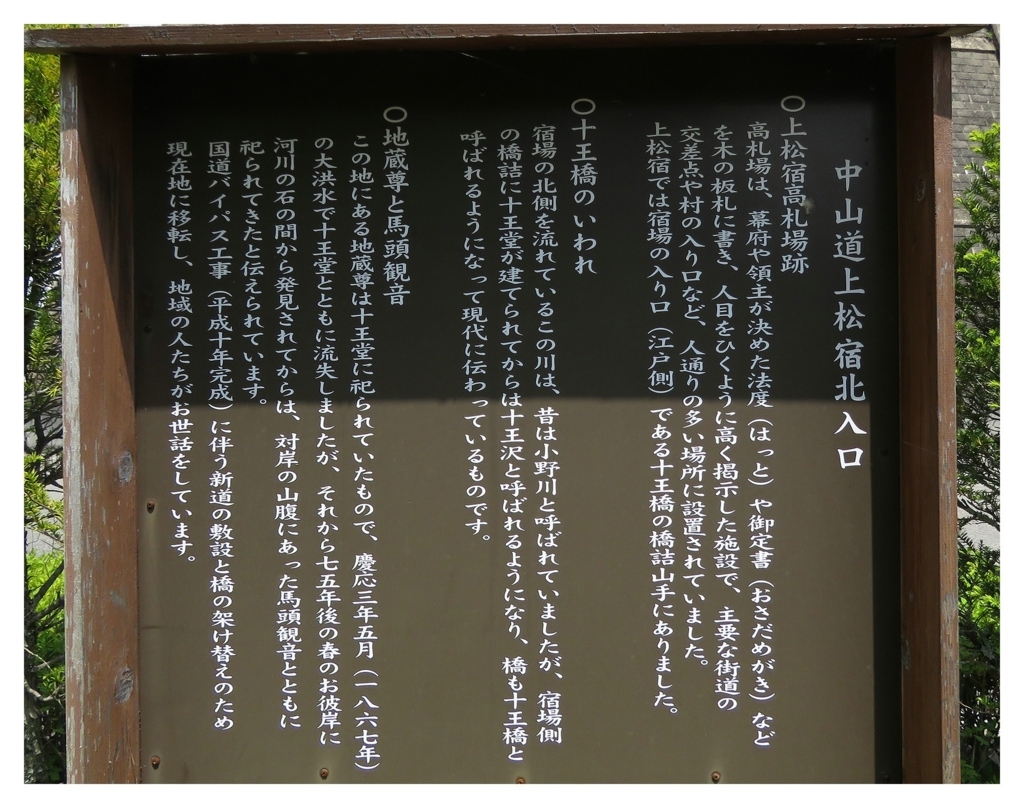 中山道上松宿北入口
〇上松宿高札場跡
高札場は、幕府や領主が決めた法度（はっと）や御定書（おさだめがき）など
を木の板札に書き、人目をひくように高く掲示した施設で、主要な街道の
交差点や村の入り口など、人通りの多い場所に設置されていました。
上松宿では宿場の入り口（江戸側）である十王橋の橋詰山手にありました。
〇十王橋のいわれ
宿場の北側を流れているこの川は、昔は小野川と呼ばれていましたが、宿場側
の橋詰に十王堂が建てられてからは十王沢と呼ばれるようになり、橋も十王橋と
呼ばれるようになって現代に伝わっているものです。
〇地蔵尊と馬頭観音
この地にある地蔵尊は十王堂に祀られていたもので、慶応三年五月（一八六七年）
の大洪水で十王堂とともに流失しましたが、それから七五年後の春のお彼岸に
河川の石の間から発見されてからは、対岸の山腹にあった馬頭観音とともに
祀られてきたと伝えられています。
国道バイパス工事（平成十年完成）に伴う新道の敷設と橋の架け替えのため
現在地に移転し、地域の人たちがお世話をしています。